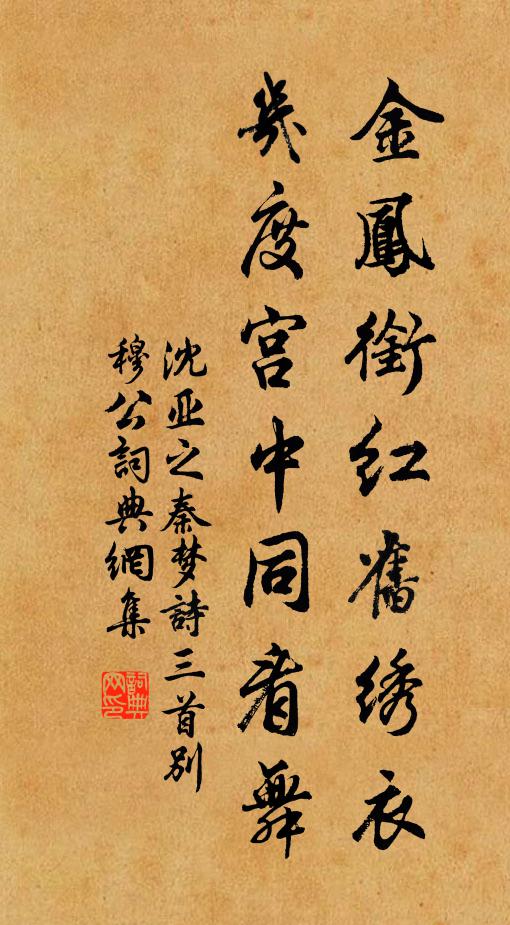 金鳳銜红舊绣衣
幾度宫中同看舞
沈亚之秦梦詩三首别
穆公詞典網集
詞典网印